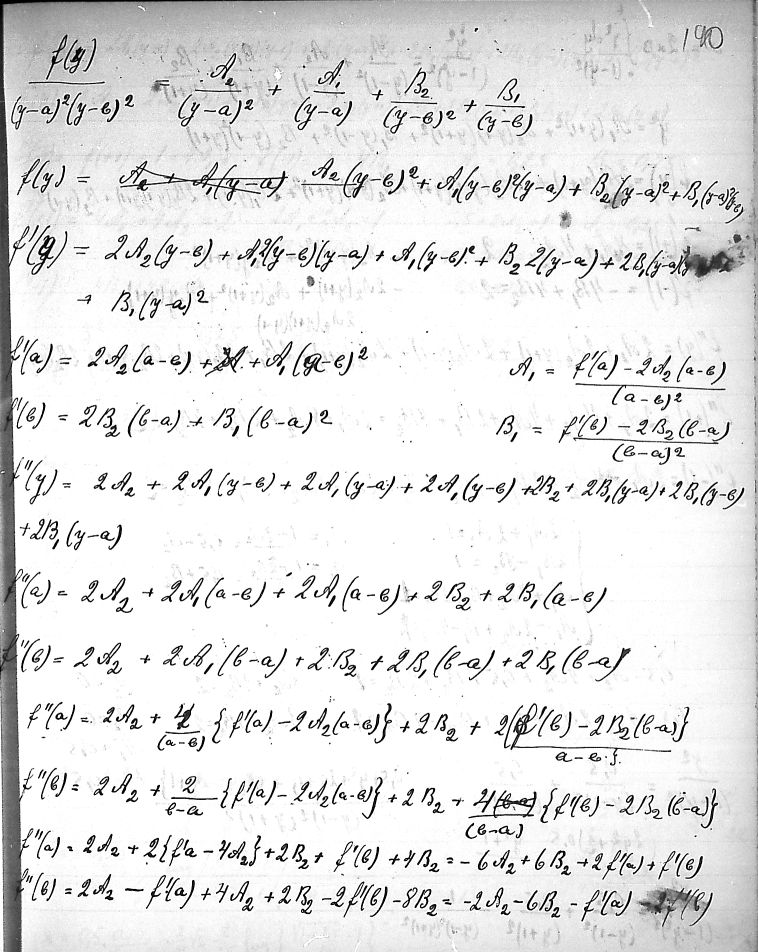 190
f(y) / (y-a)²(y-в)² = A₂ / (y-a)² + A₁ / (y-a) + B₂ / (y-в)² + B₁ / (y-в)
f(y) = A₂ + A₁(y-a) A₂(y-в)² + A₁(y-в)²(y-a) + B₂(y-a)² + B₁(y-a)²(y-в)
f'(y) = 2A₂(y-в) + A₁2(y-в)(y-a) + A₁(y-в)² + B₂2(y-a) + 2B₁(y-a)
+ B₁(y-a)²
f'(a) = 2A₂(a-в) + + A₁(a-в)² A₁ = f'(a) - 2A₂(a-в) / (a-в)²
f'(в) = 2B₂(в-a) + B₁(в-a)² B₁ = f'(в) - 2B₂(в-a) / (в-a)²
f''(y) = 2A₂ + 2A₁(y-в) + 2A₁(y-a) + 2A₁(y-в) + 2B₂ + 2B₁(y-a) + 2B₁(y-в)
+2B₁(y-a)
f''(a) = 2A₂ + 2A₁(a-в) + 2A₁(a-в) + 2B₂ + 2B₁(a-в)
f''(в) = 2A₂ + 2A₁(в-a) + 2B₂ + 2B₁(в-a) + 2B₁(в-a)
f''(a) = 2A₂ + 4 / (a-в) {f'(a) - 2A₂(a-в)} + 2B₂ + 2(f'(в) - 2B₂(в-a)} / a-в}
f''(в) = 2A₂ + 2 / в-a {f'(a) - 2A₂(a-в)} + 2B₂ + 4(в-a) / (в-a) {f'(в) - 2B₂(в-a)}
f''(a) = 2A₂ + 2{f'a - 4A₂} + 2B₂ + f'(в) + 4B₂ = -6A₂ + 6B₂ + 2f'(a) + f'(в)
f''(в) = 2A₂ - f'(a) + 4A₂ + 2B₂ - 2f'(в) - 8B₂ = -2A₂ - 6B₂ - f'(a) - f'(в)